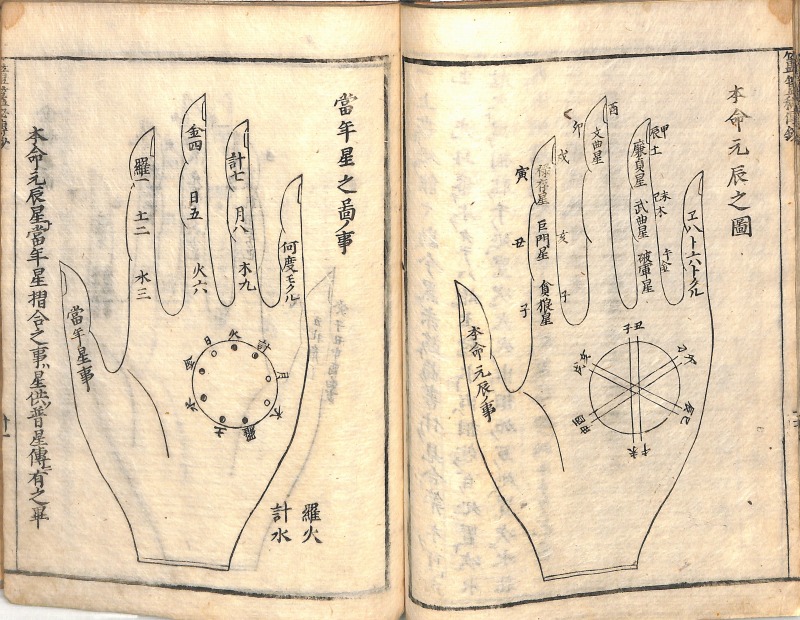 本命元辰之圖
ヱハト六ハトクル
甲
辰土
未
巳木
午金
廉貞星
武曲星
破軍星
酉
卯
文曲星
戌
亥
子
寅
丑
子
祿存星
巨門星
貪狼星
本命元辰ノ事
子丑
午未
當年星之啚ノ事
何度モクル
計七
月八
木九
金四
日五
火六
羅一
土二
水三
當年星事
日
火
計
月
木
羅
土
水
羅火
計水
本命元辰星當年星摺合之事星供普星傳有之畢